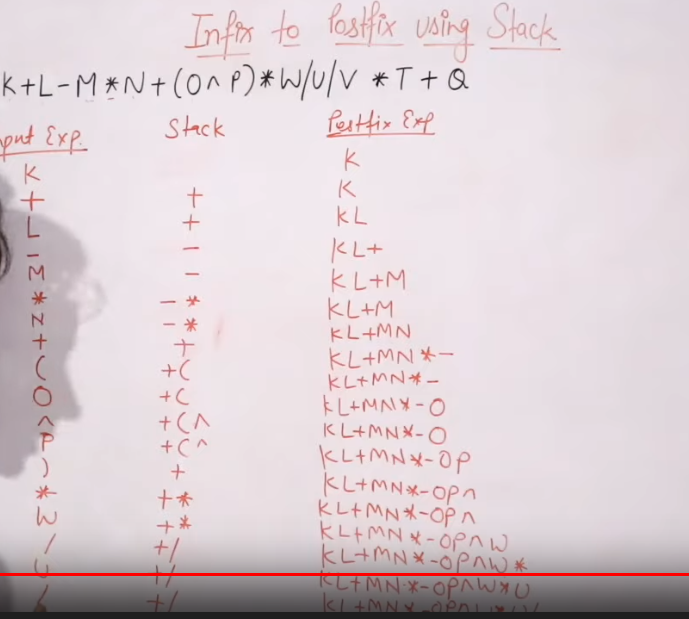 Infix to Postfix using Stack
K+L-M*N+(O^P)*W/U/V*T+Q
put Exp. Stack Postfix Exp
K K
+ + K
L + KL
- - KL+
M - KL+M
* -* KL+M
N -* KL+MN
+ + KL+MN*-
( +( KL+MN*-
O +( KL+MN*-O
^ +(^ KL+MN*-O
P +(^ KL+MN*-OP
) + KL+MN*-OP^
* +* KL+MN*-OP^
W +* KL+MN*-OP^W
/ +/ KL+MN*-OP^W*
U +/ KL+MN*-OP^W*U
/ +/